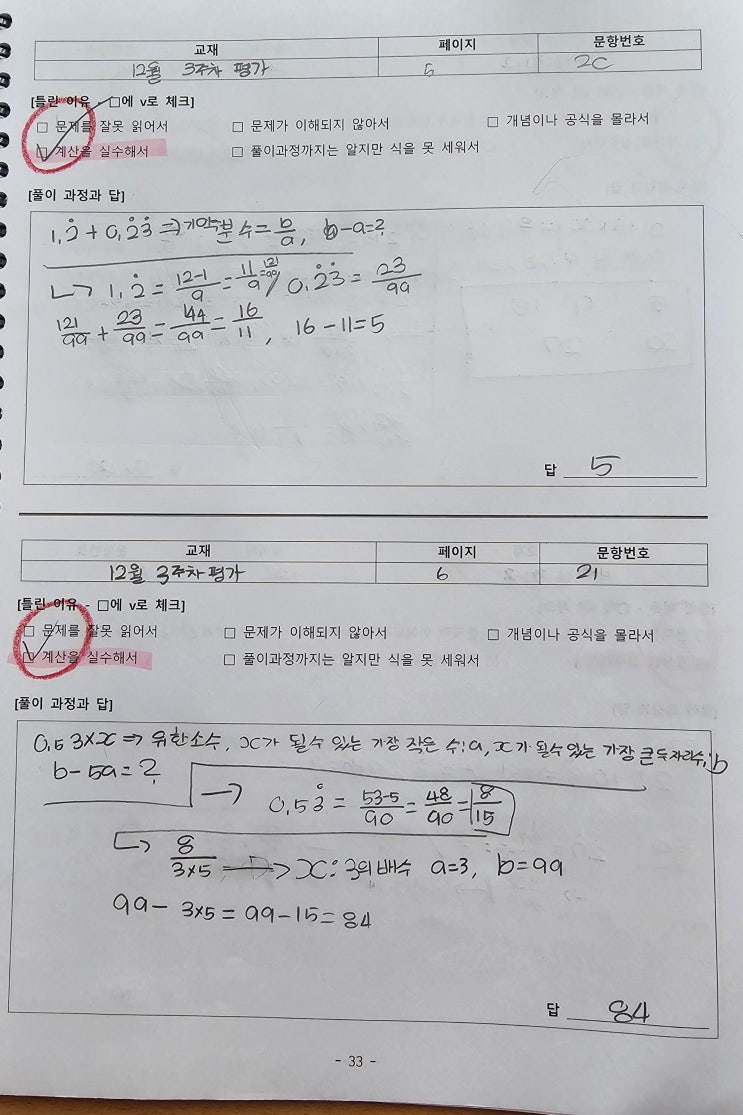 교재 페이지 문항번호
12월 3주차 평가 5 20
[틀린 이유 - □에 v로 체크]
□ 문제를 잘못 읽어서 □ 문제가 이해되지 않아서 □ 개념이나 공식을 몰라서
□ 계산을 실수해서 □ 풀이과정까지는 알지만 식을 못 세워서
[풀이 과정과 답]
1.2̇ + 0.2̇3̇ ⇒ 기약분수 = b/a, b-a=?
↳ 1.2̇ = 12-1/9 = 11/9 = 121/99, 0.2̇3̇ = 23/99
121/99 + 23/99 = 144/99 = 16/11, 16-11=5
답 5
교재 페이지 문항번호
12월 3주차 평가 6 21
[틀린 이유 - □에 v로 체크]
□ 문제를 잘못 읽어서 □ 문제가 이해되지 않아서 □ 개념이나 공식을 몰라서
□ 계산을 실수해서 □ 풀이과정까지는 알지만 식을 못 세워서
[풀이 과정과 답]
0.53×x ⇒ 유한소수, x가 될수 있는 가장 작은 수: a, x가 될수있는 가장 큰 두자리수: b
b-5a=?
→ 0.53̇ = 53-5/90 = 48/90 = 8/15
↳ 8/3×5 → x: 3의 배수 a=3, b=99
99- 3×5 = 99-15 = 84
답 84
- 33 -